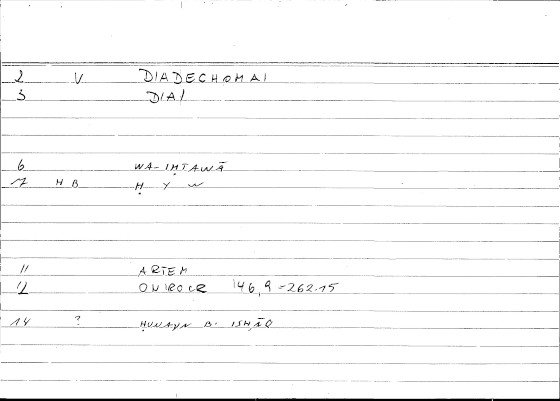 2 V DIADECHOMAI
3 DIA!
6 WA-IḤTAWĀ
7 HB Ḥ Y W
11 ARTEM
12 ONIROCR 146,9 = 262.15
14 ? ḤUNAYN B. ISḤĀQ